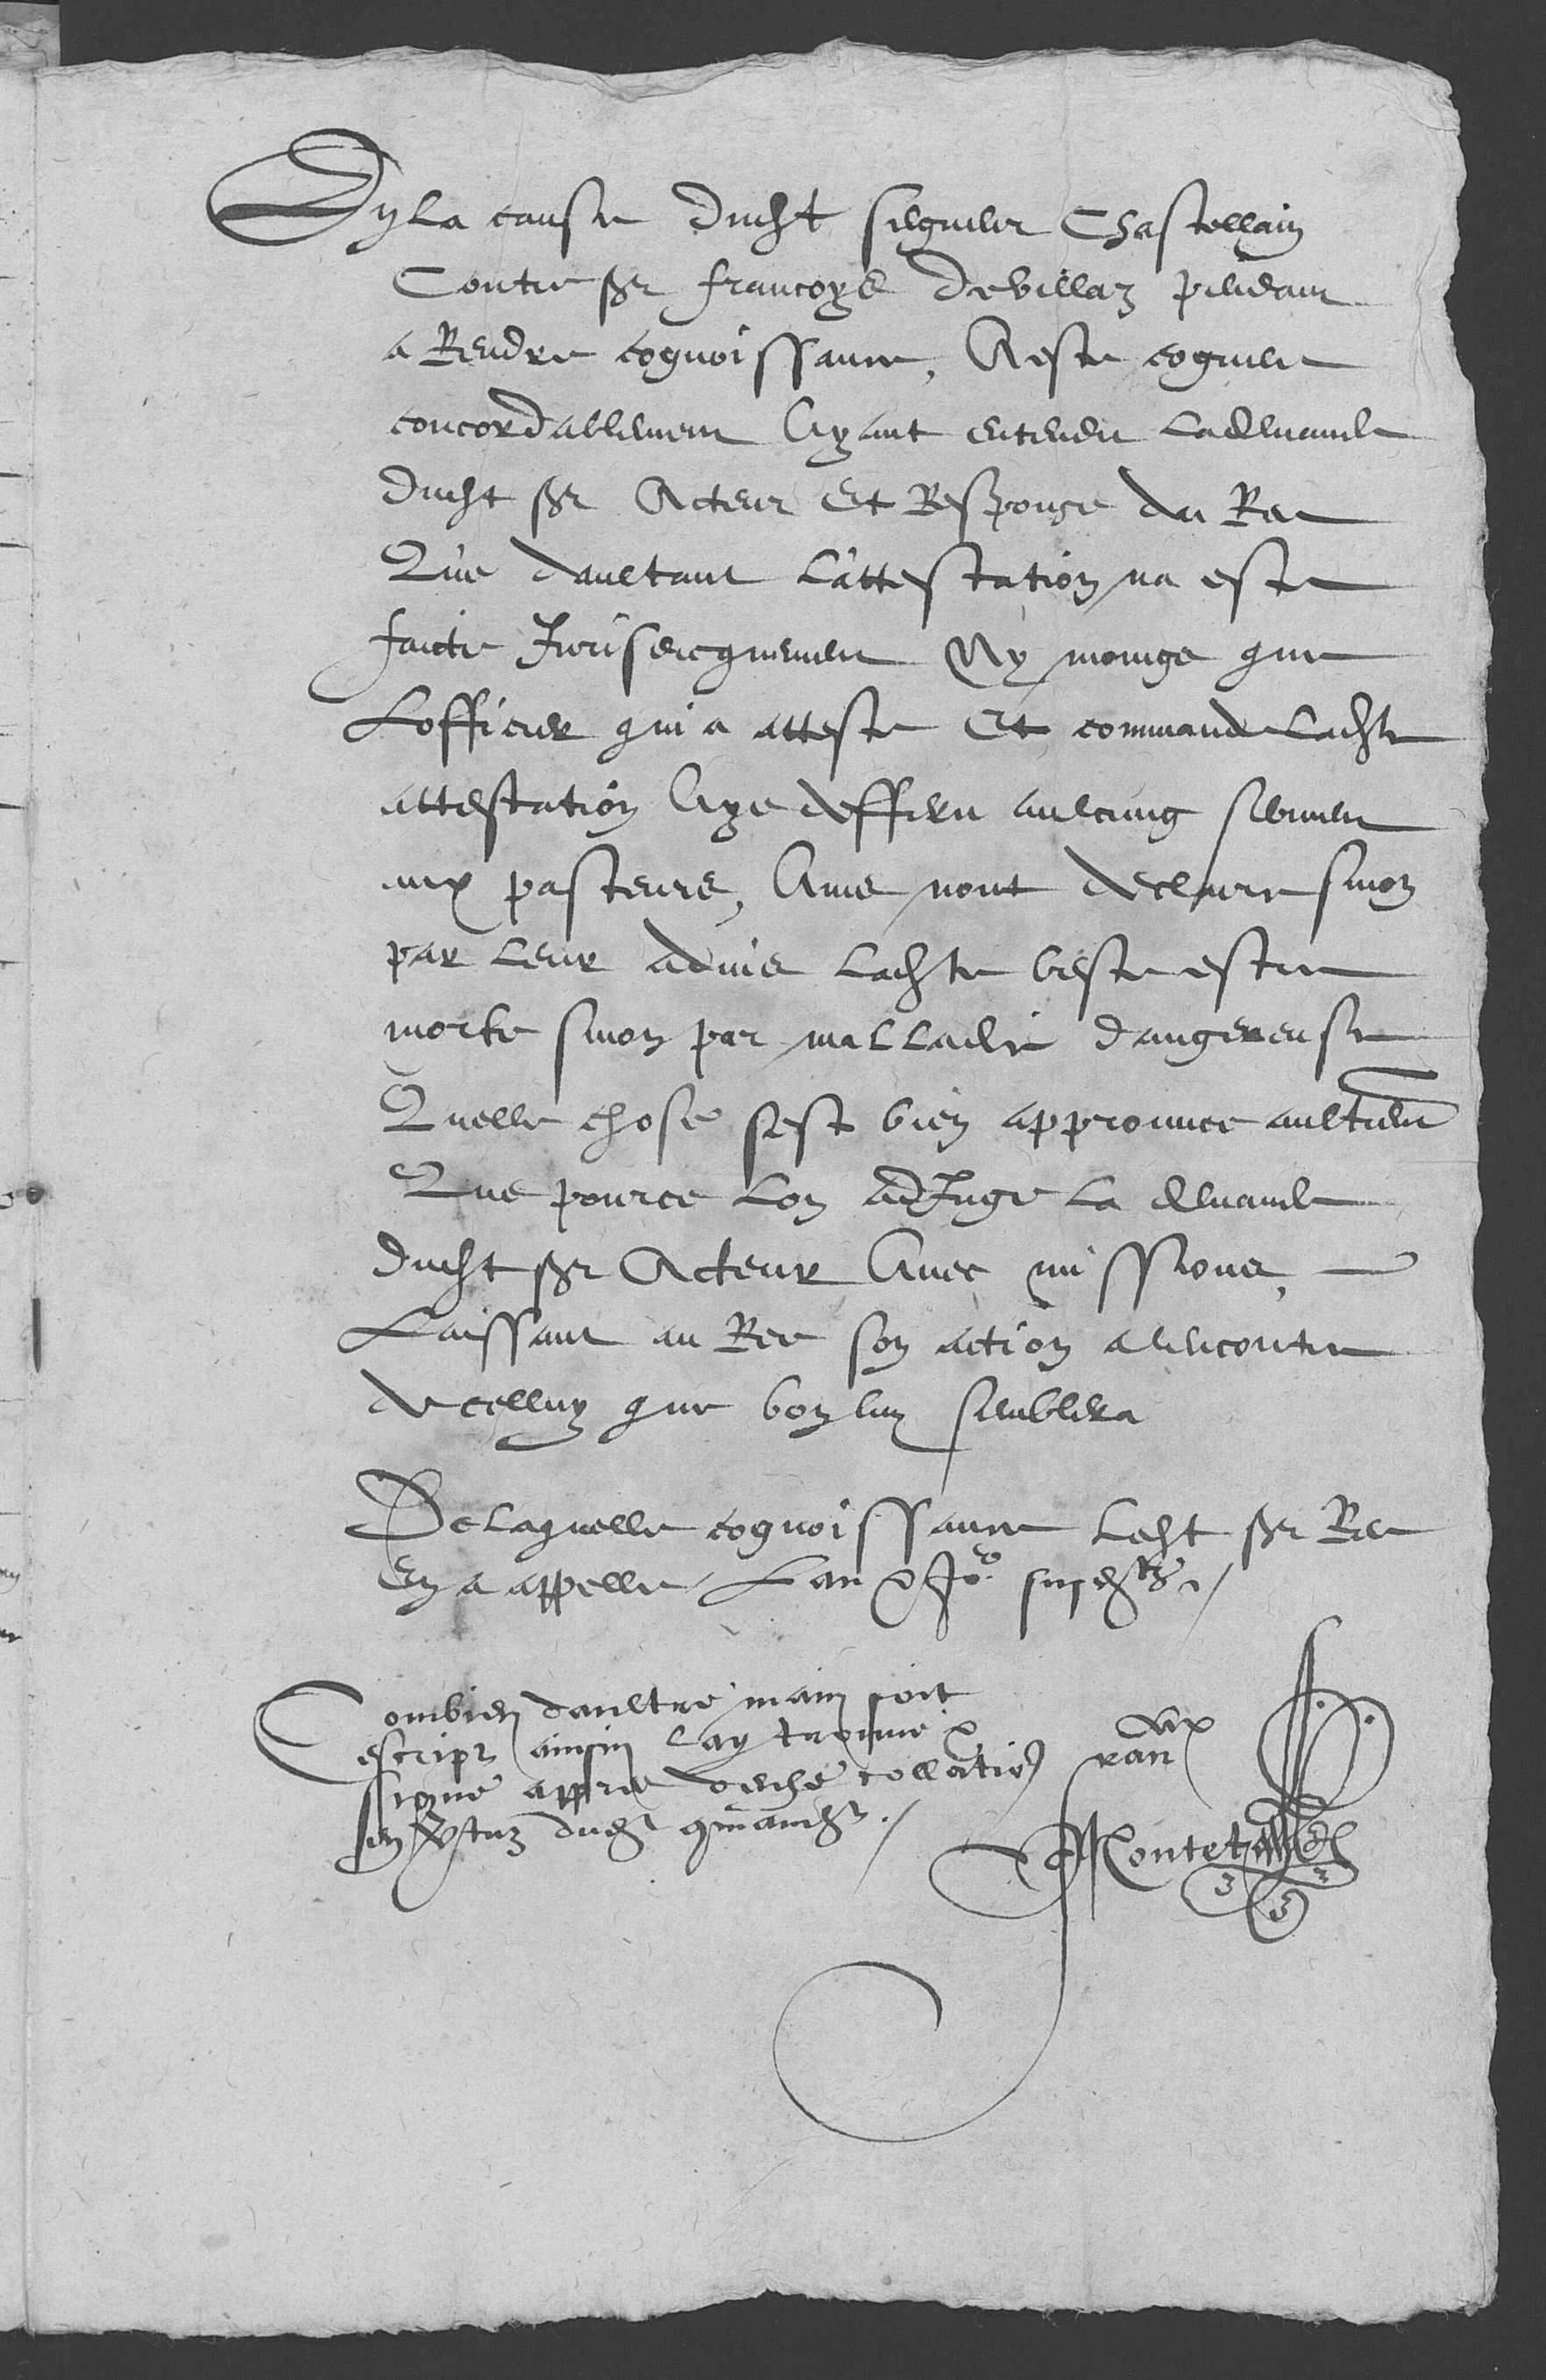 En la cause dudit seigneur Chastellain
Contre sr francoys devillaz pendant
a Rendre cognoissance, A este cogneu
concordablement Ayant entendu la demande
dudit sr Acteur Et Response du Ree
Que daultant l'attestation na este
faicte Juridicquement Ny moings que
Lofficier qui a atteste Et commande ladite
attestation Aye defferu aulcung serment
aux pasteurs, Ains nont declaire sinon
par leur advis ladite beste estre
morte sinon par malladie dangereuse
Quelle chose sest bien approuuce aultrement
Que pource Lon adJuge la demande
dudit sr Acteur Avec missions,
Laissant au Ree son action alencontre
de celluy que bon luy semblera
De laquelle cognoissance ledit sr Ree
En a appelle Lan & Jo susdits
Combien daultre main soit
escript ainsin lay trouvé &
signe appres deuhe collation
en vertuz dudit